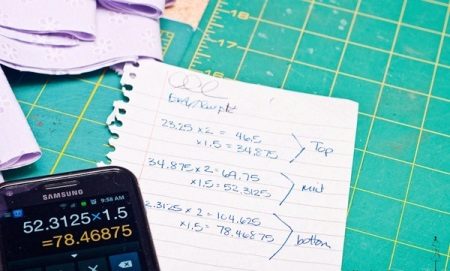 18
17
16
23.25 x 2 = 46.5
x 1.5 = 34.875
Top
34.875 x 2 = 69.75
x 1.5 = 52.3125
mid
2.3125 x 2 = 104.625
x 1.5 = 78.46875
bottom
SAMSUNG
9:58 AM
52.3125×1.5
=78.46875